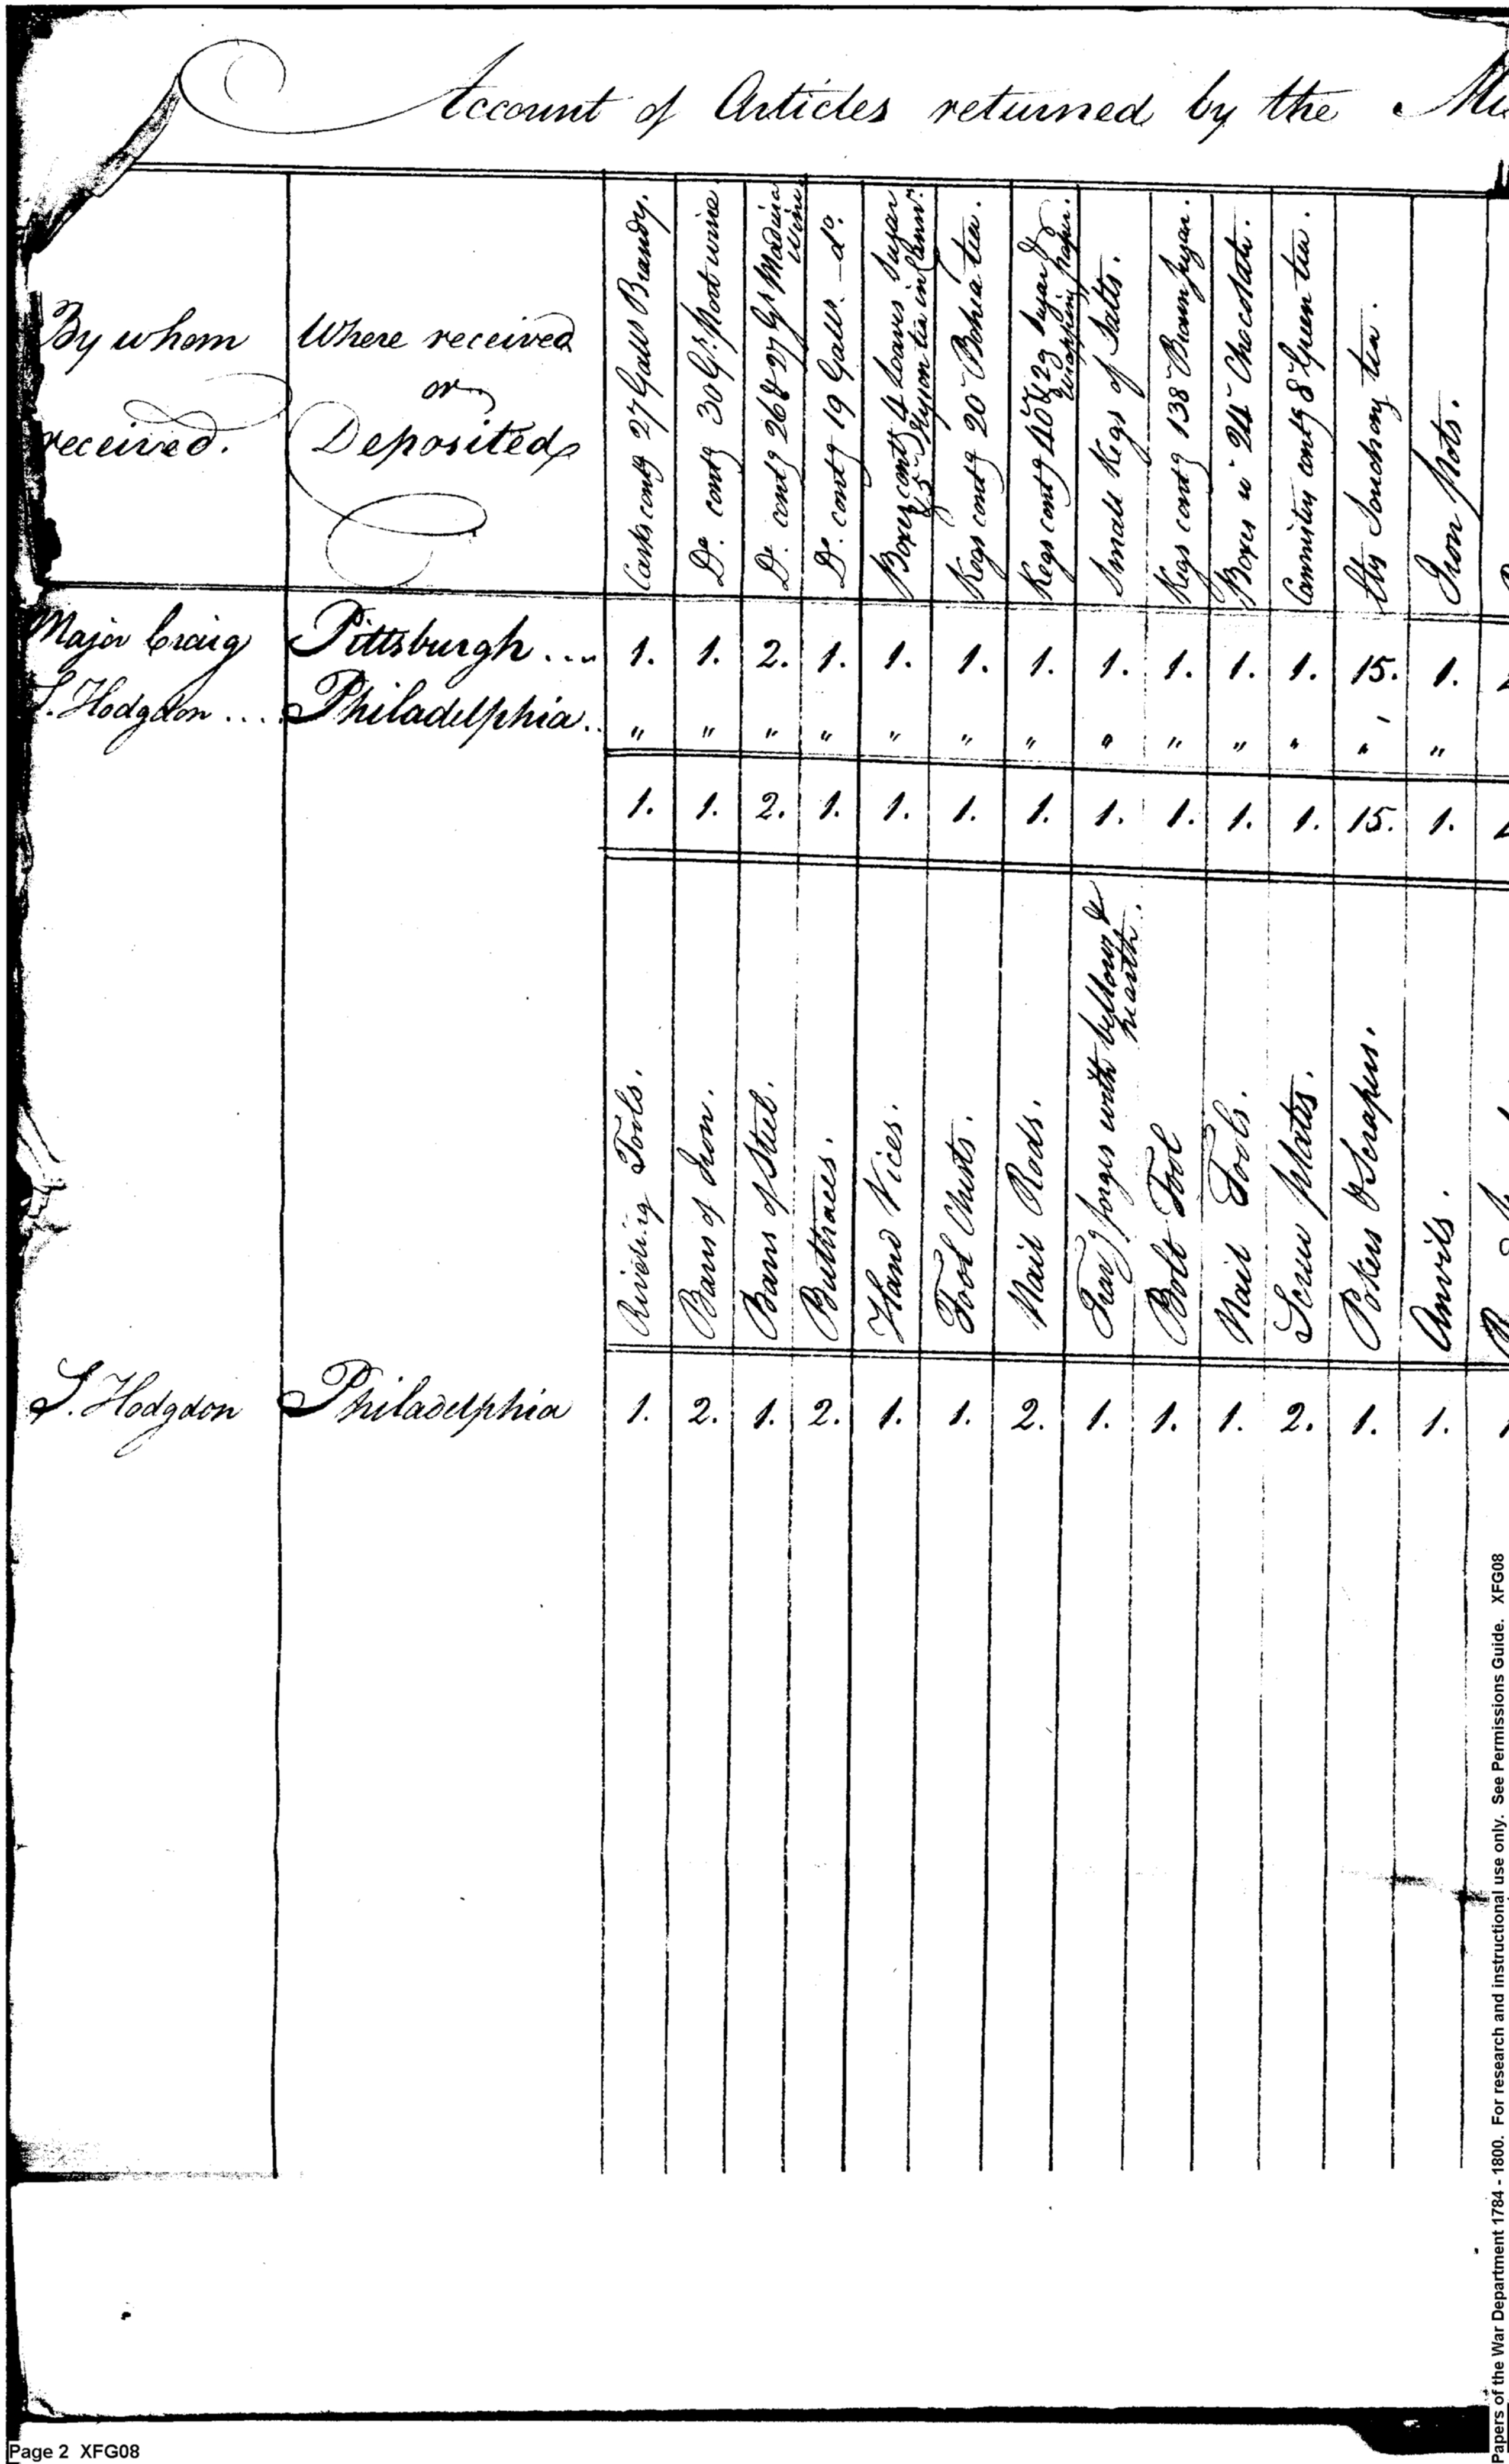 Account of Articles returned by the
By whom
received.
Where received
or
Deposited
Casks contg 27 Galls Brandy.
Do. contg 30 Gs. Port wine
Do. contg 26 & 27 Gs Madeira
Wine
Do. contg 19 Galls. - do.
Boxes contg 4 Loaves Sugar
& 5 Hyson tea in Cann.
Kegs contg 20 Bohea tea.
Kegs contg 40 & 29 Sugar &
wrapping paper.
Small Kegs of Salts.
Kegs contg 138 Brown Sugar.
Boxes " 24 Chocolate.
Cannister contg 8 Green tea.
lbs Souchong tea.
Iron Pots.
Major Craig Pittsburgh ... 1. 1. 2. 1. 1. 1. 1. 1. 1. 1. 1. 15. 1.
S. Hodgdon .... Philadelphia.. " " " " " " " " " " " " "
1. 1. 2. 1. 1. 1. 1. 1. 1. 1. 1. 15. 1.
Riveting Tools.
Bars of Iron.
Bars of Steel.
Buttraces.
Hand Vices.
Tool Chests.
Nail Rods.
Travg forges with bellows &
hearth.
Bolt Tool
Nail Tools.
Screw plates.
Pokers & Scrapers.
Anvils.
S. Hodgdon Philadelphia 1. 2. 1. 2. 1. 1. 2. 1. 1. 1. 2. 1. 1.
Papers of the War Department 1784 - 1800. For research and instructional use only. See Permissions Guide. XFG08
Page 2 XFG08